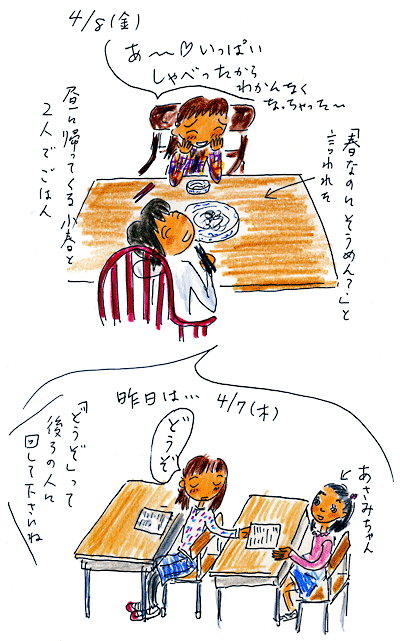 4/8(金)
あ～♡いっぱい
しゃべったから
わかんなく
なっちゃった～
「春なのにそうめん?」と
言われそ
昼に帰ってくる小春と
2人でごはん
昨日は… 4/7(木)
どうぞ
「どうぞ」って
後ろの人に
回して下さいね
あさみちゃん